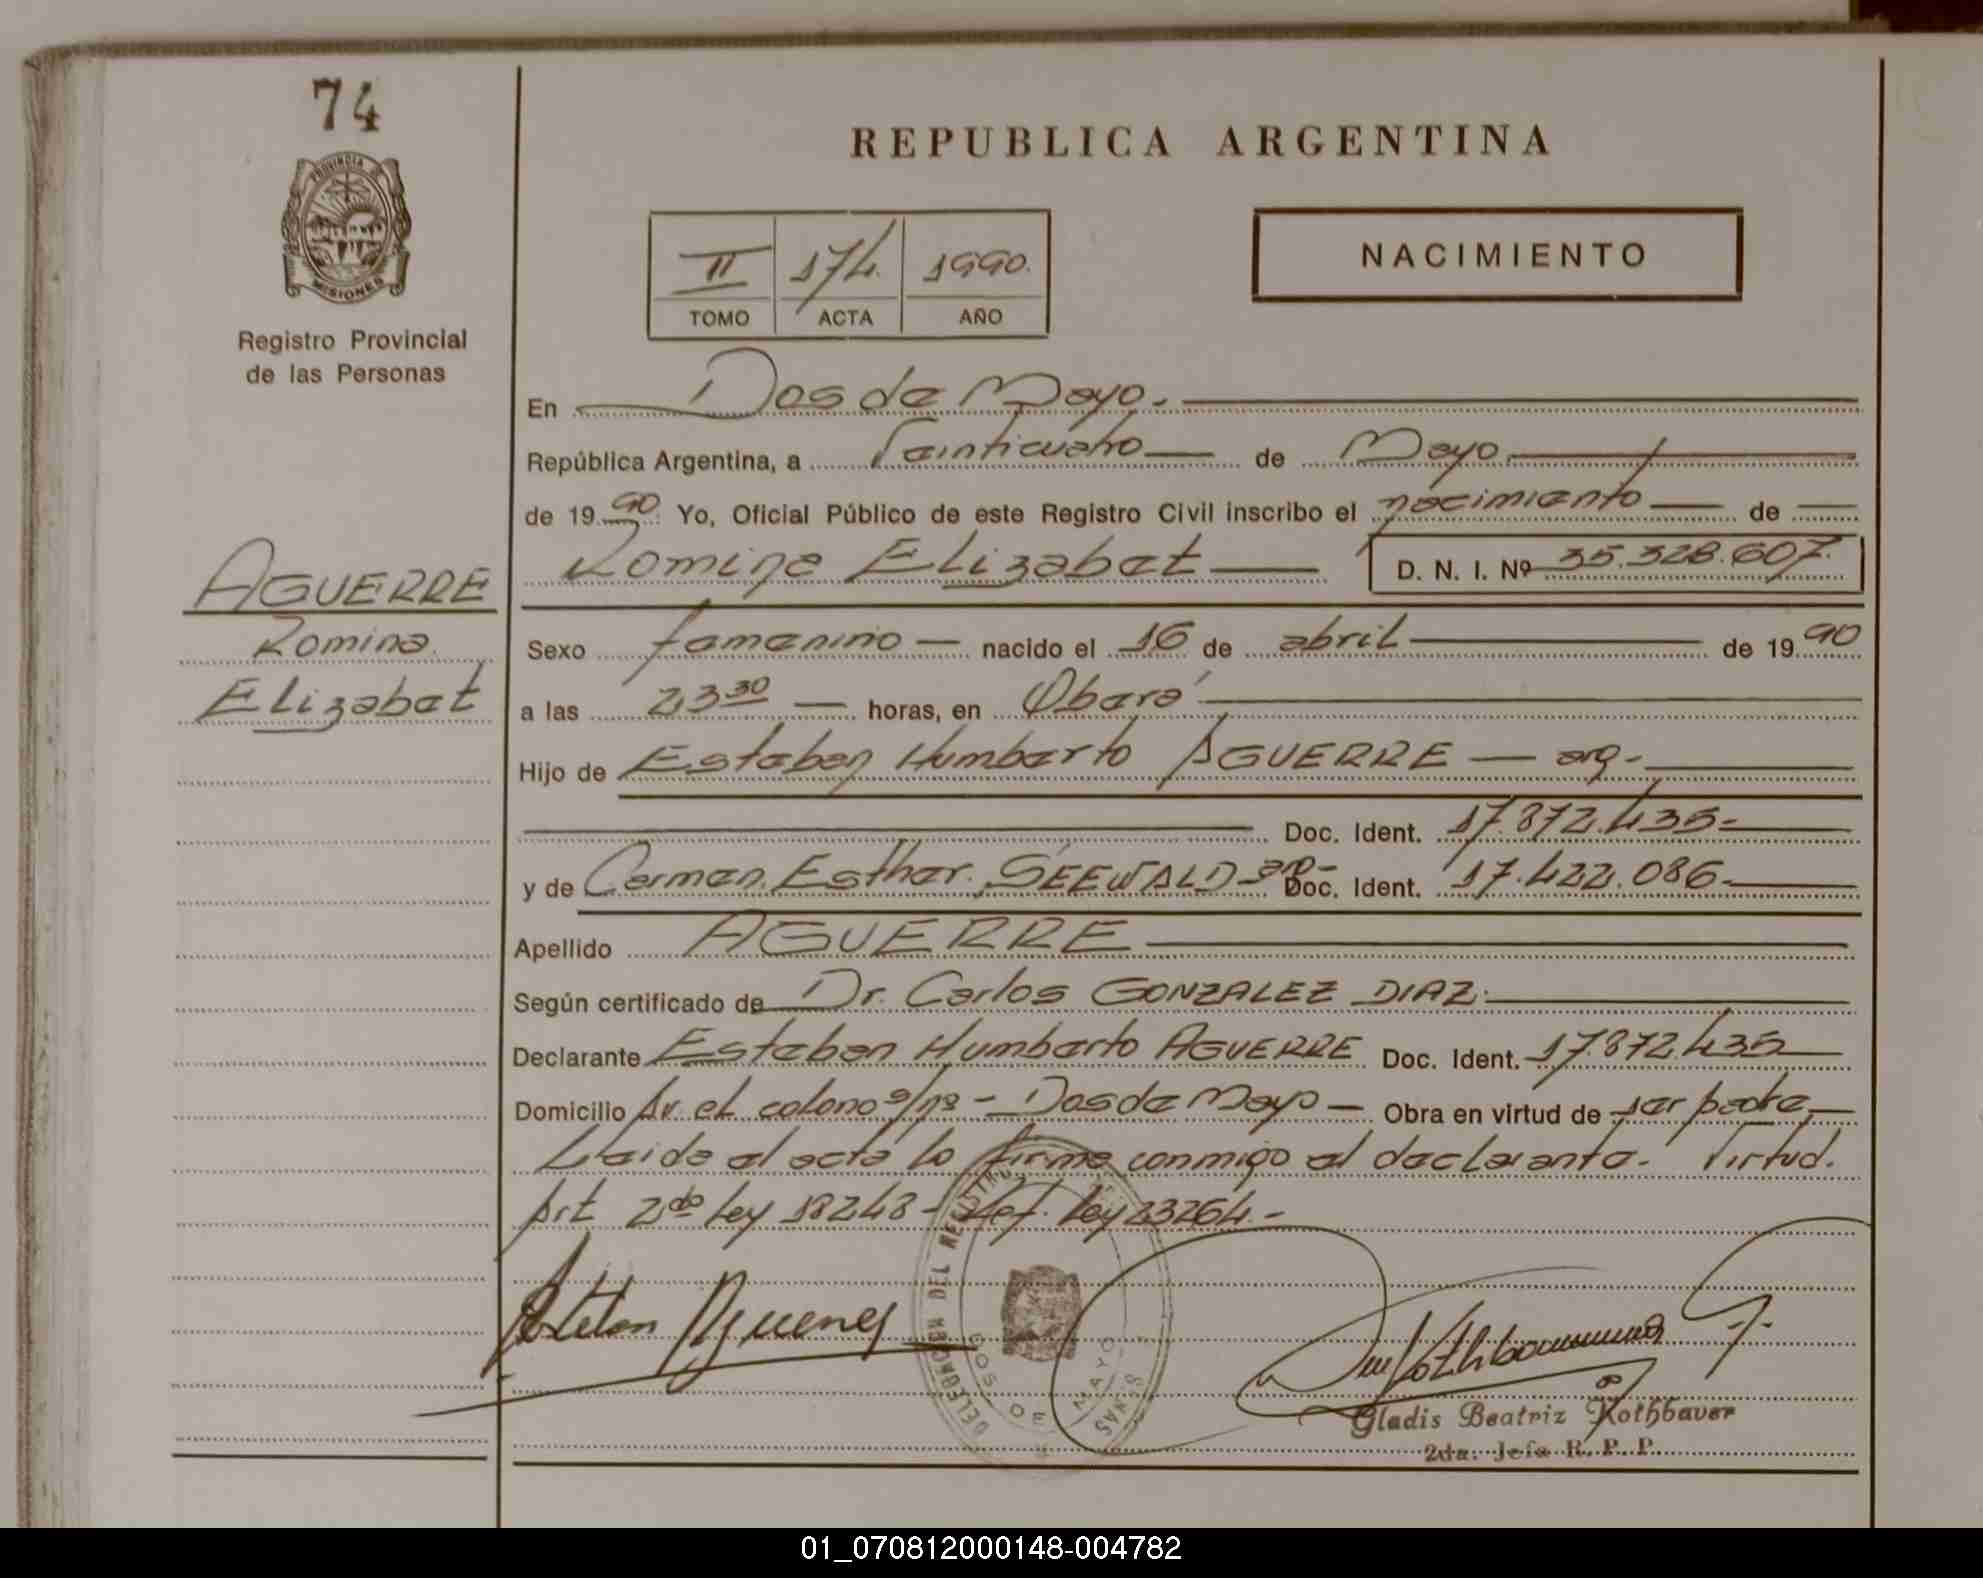 74
PROVINCIA DE
MISIONES
Registro Provincial
de las Personas
AGUERRE
Romina
Elizabet
REPUBLICA ARGENTINA
II 174. 1990.
TOMO ACTA AÑO
NACIMIENTO
En Dos de Mayo.
República Argentina, a Veinticuatro de Mayo
de 1990 Yo, Oficial Público de este Registro Civil inscribo el nacimiento de
Romina Elizabet D. N. I. Nº 35.328.607.
Sexo femenino nacido el 16 de abril de 1990
a las 23 30 horas, en Oberá
Hijo de Esteban Humberto AGUERRE - arg.
Doc. Ident. 17.872.435-
y de Carmen Esther SEEWALD arg- Doc. Ident. 17.422.086-
Apellido AGUERRE
Según certificado de Dr. Carlos GONZALEZ DIAZ.
Declarante Esteban Humberto AGUERRE Doc. Ident. 17.872.435
Domicilio Av. el colono s/nº - Dos de Mayo - Obra en virtud de ser padre
Leida el acta la firma conmigo el declarante. Virtud.
Art 2do Ley 18248 - Ley 23264.-
DOS DE MAYO
Gladis Beatriz Kothbauer
2da. Jefa R. P. P.
01_070812000148-004782